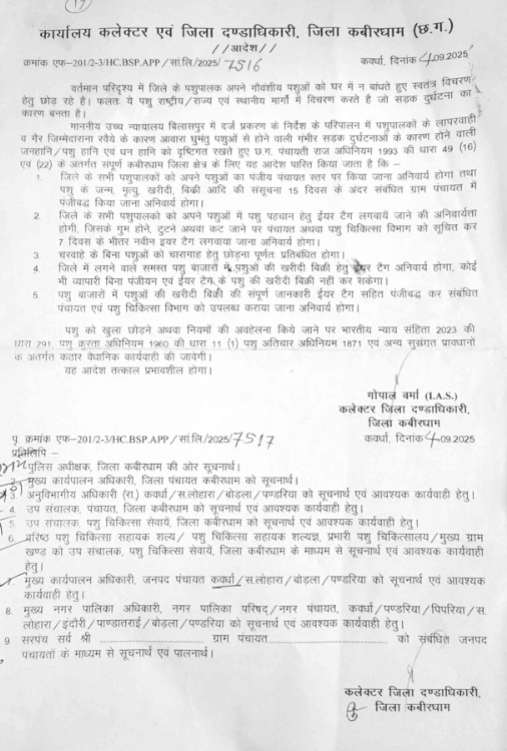 कार्यालय कलेक्टर एवं जिला दण्डाधिकारी, जिला कबीरधाम (छ.ग.)
//आदेश//
क्रमांक एफ-201/2-3/HC.BSP.APP/सां.लि/2025/7516 कवर्धा, दिनांक 4.09.2025
वर्तमान परिदृश्य में जिले के पशुपालक अपने गौवंशीय पशुओं को घर में न बांधते हुए स्वतंत्र विचरण
हेतु छोड रहे है। फलतः ये पशु राष्ट्रीय/राज्य एवं स्थानीय मार्गो में विचरण करते है जो सड़क दुर्घटना का
कारण बनता है।
माननीय उच्च न्यायालय बिलासपुर में दर्ज प्रकरण के निर्देश के परिपालन में पशुपालकों के लापरवाही
व गैर जिम्मेदाराना रवैये के कारण आवारा घुमंतु पशुओं से होने वाली गंभीर सड़क दुर्घटनाओं के कारण होने वाली
जनहानि/पशु हानि एवं धन हानि को दृष्टिगत रखते हुए छ.ग. पंचायती राज अधिनियम 1993 की धारा 49 (16)
एवं (22) के अंतर्गत संपूर्ण कबीरधाम जिला क्षेत्र के लिए यह आदेश पारित किया जाता है कि –
1. जिले के सभी पशुपालकों को अपने पशुओं का पंजीय पंचायत स्तर पर किया जाना अनिवार्य होगा तथा
पशु के जन्म, मृत्यु, खरीदी, बिक्री आदि की संसूचना 15 दिवस के अंदर संबंधित ग्राम पंचायत में
पंजीबद्ध किया जाना अनिवार्य होगा।
2. जिले के सभी पशुपालकों को अपने पशुओं में पशु पहचान हेतु ईयर टैग लगवायें जाने की अनिवार्यता
होगी, जिसके गुम होने, टुटने अथवा कट जाने पर पंचायत अथवा पशु चिकित्सा विभाग को सूचित कर
7 दिवस के भीतर नवीन इयर टैग लगवाया जाना अनिवार्य होगा।
3. चरवाहे के बिना पशुओं को चारागाह हेतु छोड़ना पूर्णतः प्रतिबंधित होगा।
4. जिले में लगने वाले समस्त पशु बाजारों में पशुओं की खरीदी बिक्री हेतु ईयर टैग अनिवार्य होगा, कोई
भी व्यापारी बिना पंजीयन एवं ईयर टैग के पशु की खरीदी बिक्री नहीं कर सकेगा।
5. पशु बाजारों में पशुओं की खरीदी बिक्री की संपूर्ण जानकारी ईयर टैग सहित पंजीबद्ध कर संबंधित
पंचायत एवं पशु चिकित्सा विभाग को उपलब्ध कराया जाना अनिवार्य होगा।
पशु को खुला छोडने अथवा नियमों की अवहेलना किये जाने पर भारतीय न्याय संहिता 2023 की
धारा 291, पशु क्रुरता अधिनियम 1960 की धारा 11 (1) पशु अतिचार अधिनियम 1871 एवं अन्य सुसंगत प्रावधानों
के अंतर्गत कठोर वैधानिक कार्यवाही की जावेगी।
यह आदेश तत्काल प्रभावशील होगा।
गोपाल वर्मा (I.A.S.)
कलेक्टर जिला दण्डाधिकारी,
जिला कबीरधाम
पृ. क्रमांक एफ-201/2-3/HC.BSP.APP/सां.लि/2025/7517 कवर्धा, दिनांक 4.09.2025
प्रतिलिपि –
पुलिस अधीक्षक, जिला कबीरधाम की ओर सूचनार्थ।
2. मुख्य कार्यपालन अधिकारी, जिला पंचायत कबीरधाम को सूचनार्थ।
3. अनुविभागीय अधिकारी (रा.) कवर्धा/स.लोहारा/बोडला/पण्डरिया को सूचनार्थ एवं आवश्यक कार्यवाही हेतु।
4. उप संचालक, पंचायत, जिला कबीरधाम को सूचनार्थ एवं आवश्यक कार्यवाही हेतु।
5. उप संचालक, पशु चिकित्सा सेवायें, जिला कबीरधाम को सूचनार्थ एवं आवश्यक कार्यवाही हेतु।
6. वरिष्ठ पशु चिकित्सा सहायक शल्य/ पशु चिकित्सा सहायक शल्यज्ञ, प्रभारी पशु चिकित्सालय/मुख्य ग्राम
खण्ड को उप संचालक, पशु चिकित्सा सेवायें, जिला कबीरधाम के माध्यम से सूचनार्थ एवं आवश्यक कार्यवाही
हेतु।
7. मुख्य कार्यपालन अधिकारी, जनपद पंचायत कवर्धा/स.लोहारा/बोडला/पण्डरिया को सूचनार्थ एवं आवश्यक
कार्यवाही हेतु।
8. मुख्य नगर पालिका अधिकारी, नगर पालिका परिषद्/नगर पंचायत, कवर्धा/पण्डरिया/पिपरिया/स.
लोहारा/इंदौरी/पाण्डातराई/बोडला/पण्डरिया को सूचनार्थ एवं आवश्यक कार्यवाही हेतु।
9. सरपंच सर्व श्री ........................ ग्राम पंचायत........................ को संबंधित जनपद
पंचायतों के माध्यम से सूचनार्थ एवं पालनार्थ।
कलेक्टर जिला दण्डाधिकारी,
जिला कबीरधाम